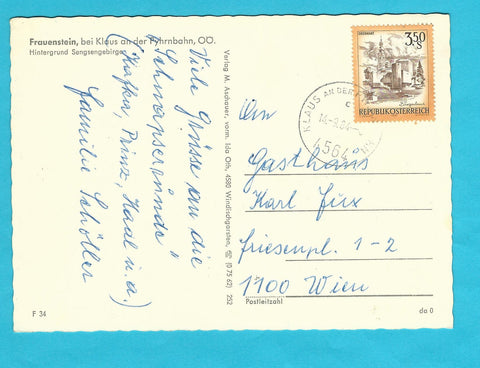 Frauenstein, bei Klaus an der Pyhrnbahn, OÖ.
Hintergrund Sengsengebirge
Viele Grüsse an die
"Schnapserrunde"
(Kafka, Prinz, Haal u.a.)
Familie Schöller
Verlag M. Aschauer, vorm. Ida Oth, 4580 Windischgarsten, ☏ (0 75 62) 252
3.50
S
REPUBLIK ÖSTERREICH
KLAUS AN DER
4564
An
Gasthaus
Karl Fux
Friesenpl. 1-2
1100 Wien
Postleitzahl
F 34
da 0